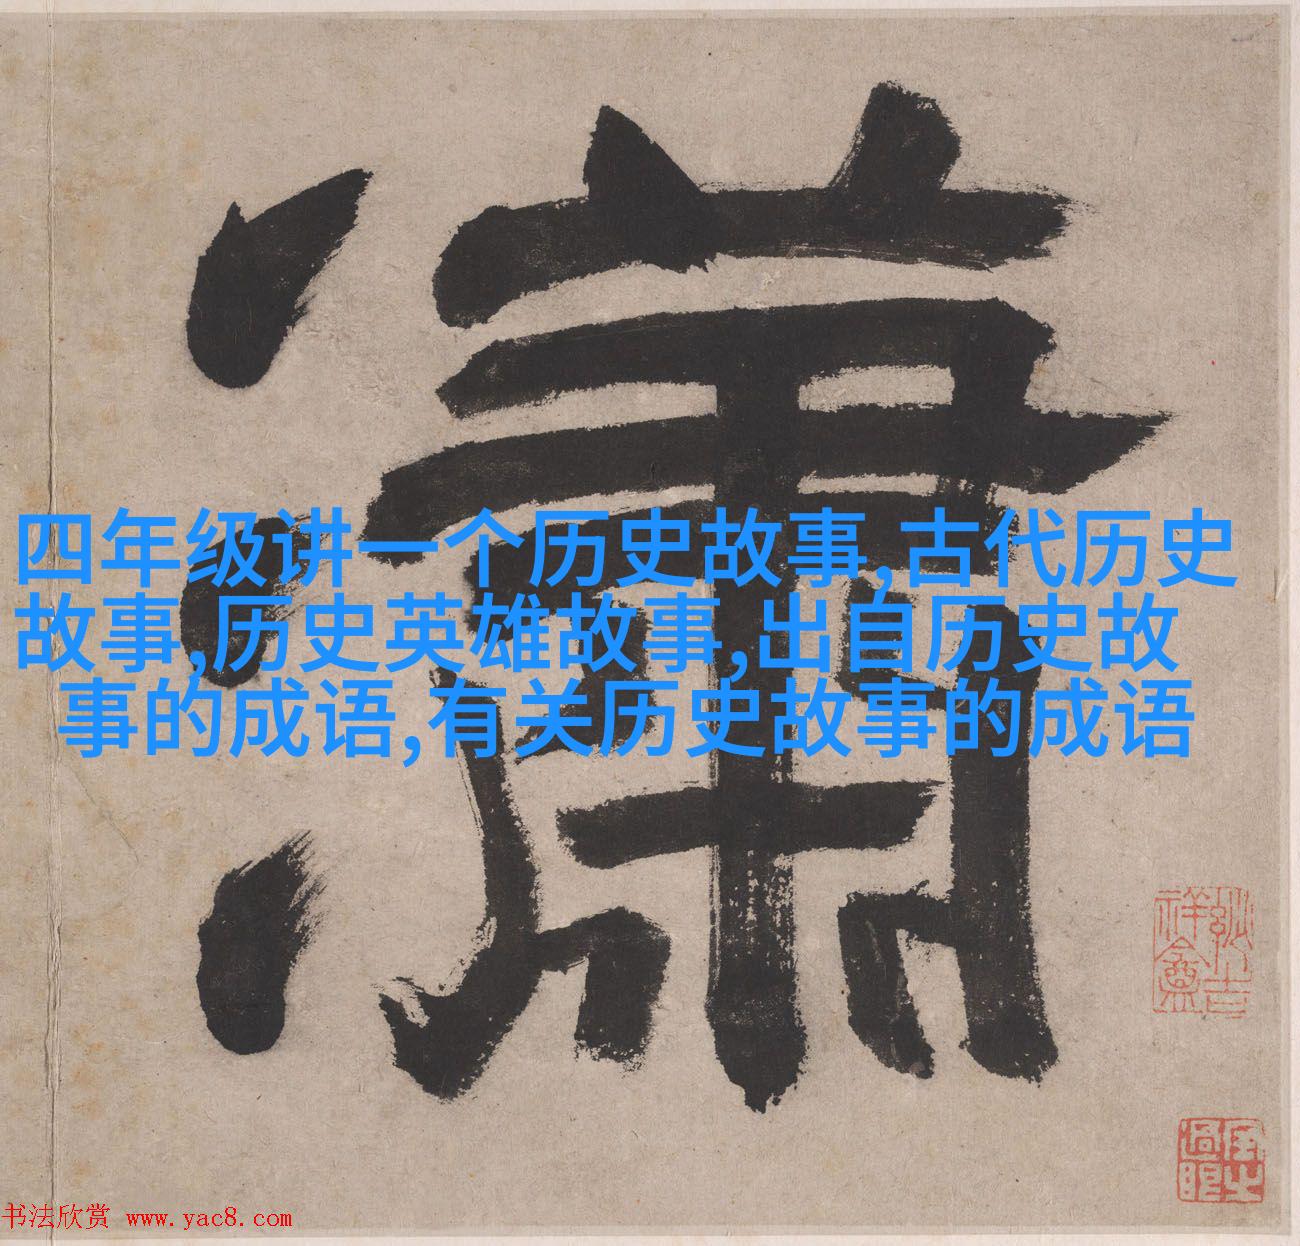 瀟
四年级讲一个历史故事,古代历史
故事,历史英雄故事,出自历史故
事的成语,有关历史故事的成语
书法欣赏 www.yac8.com